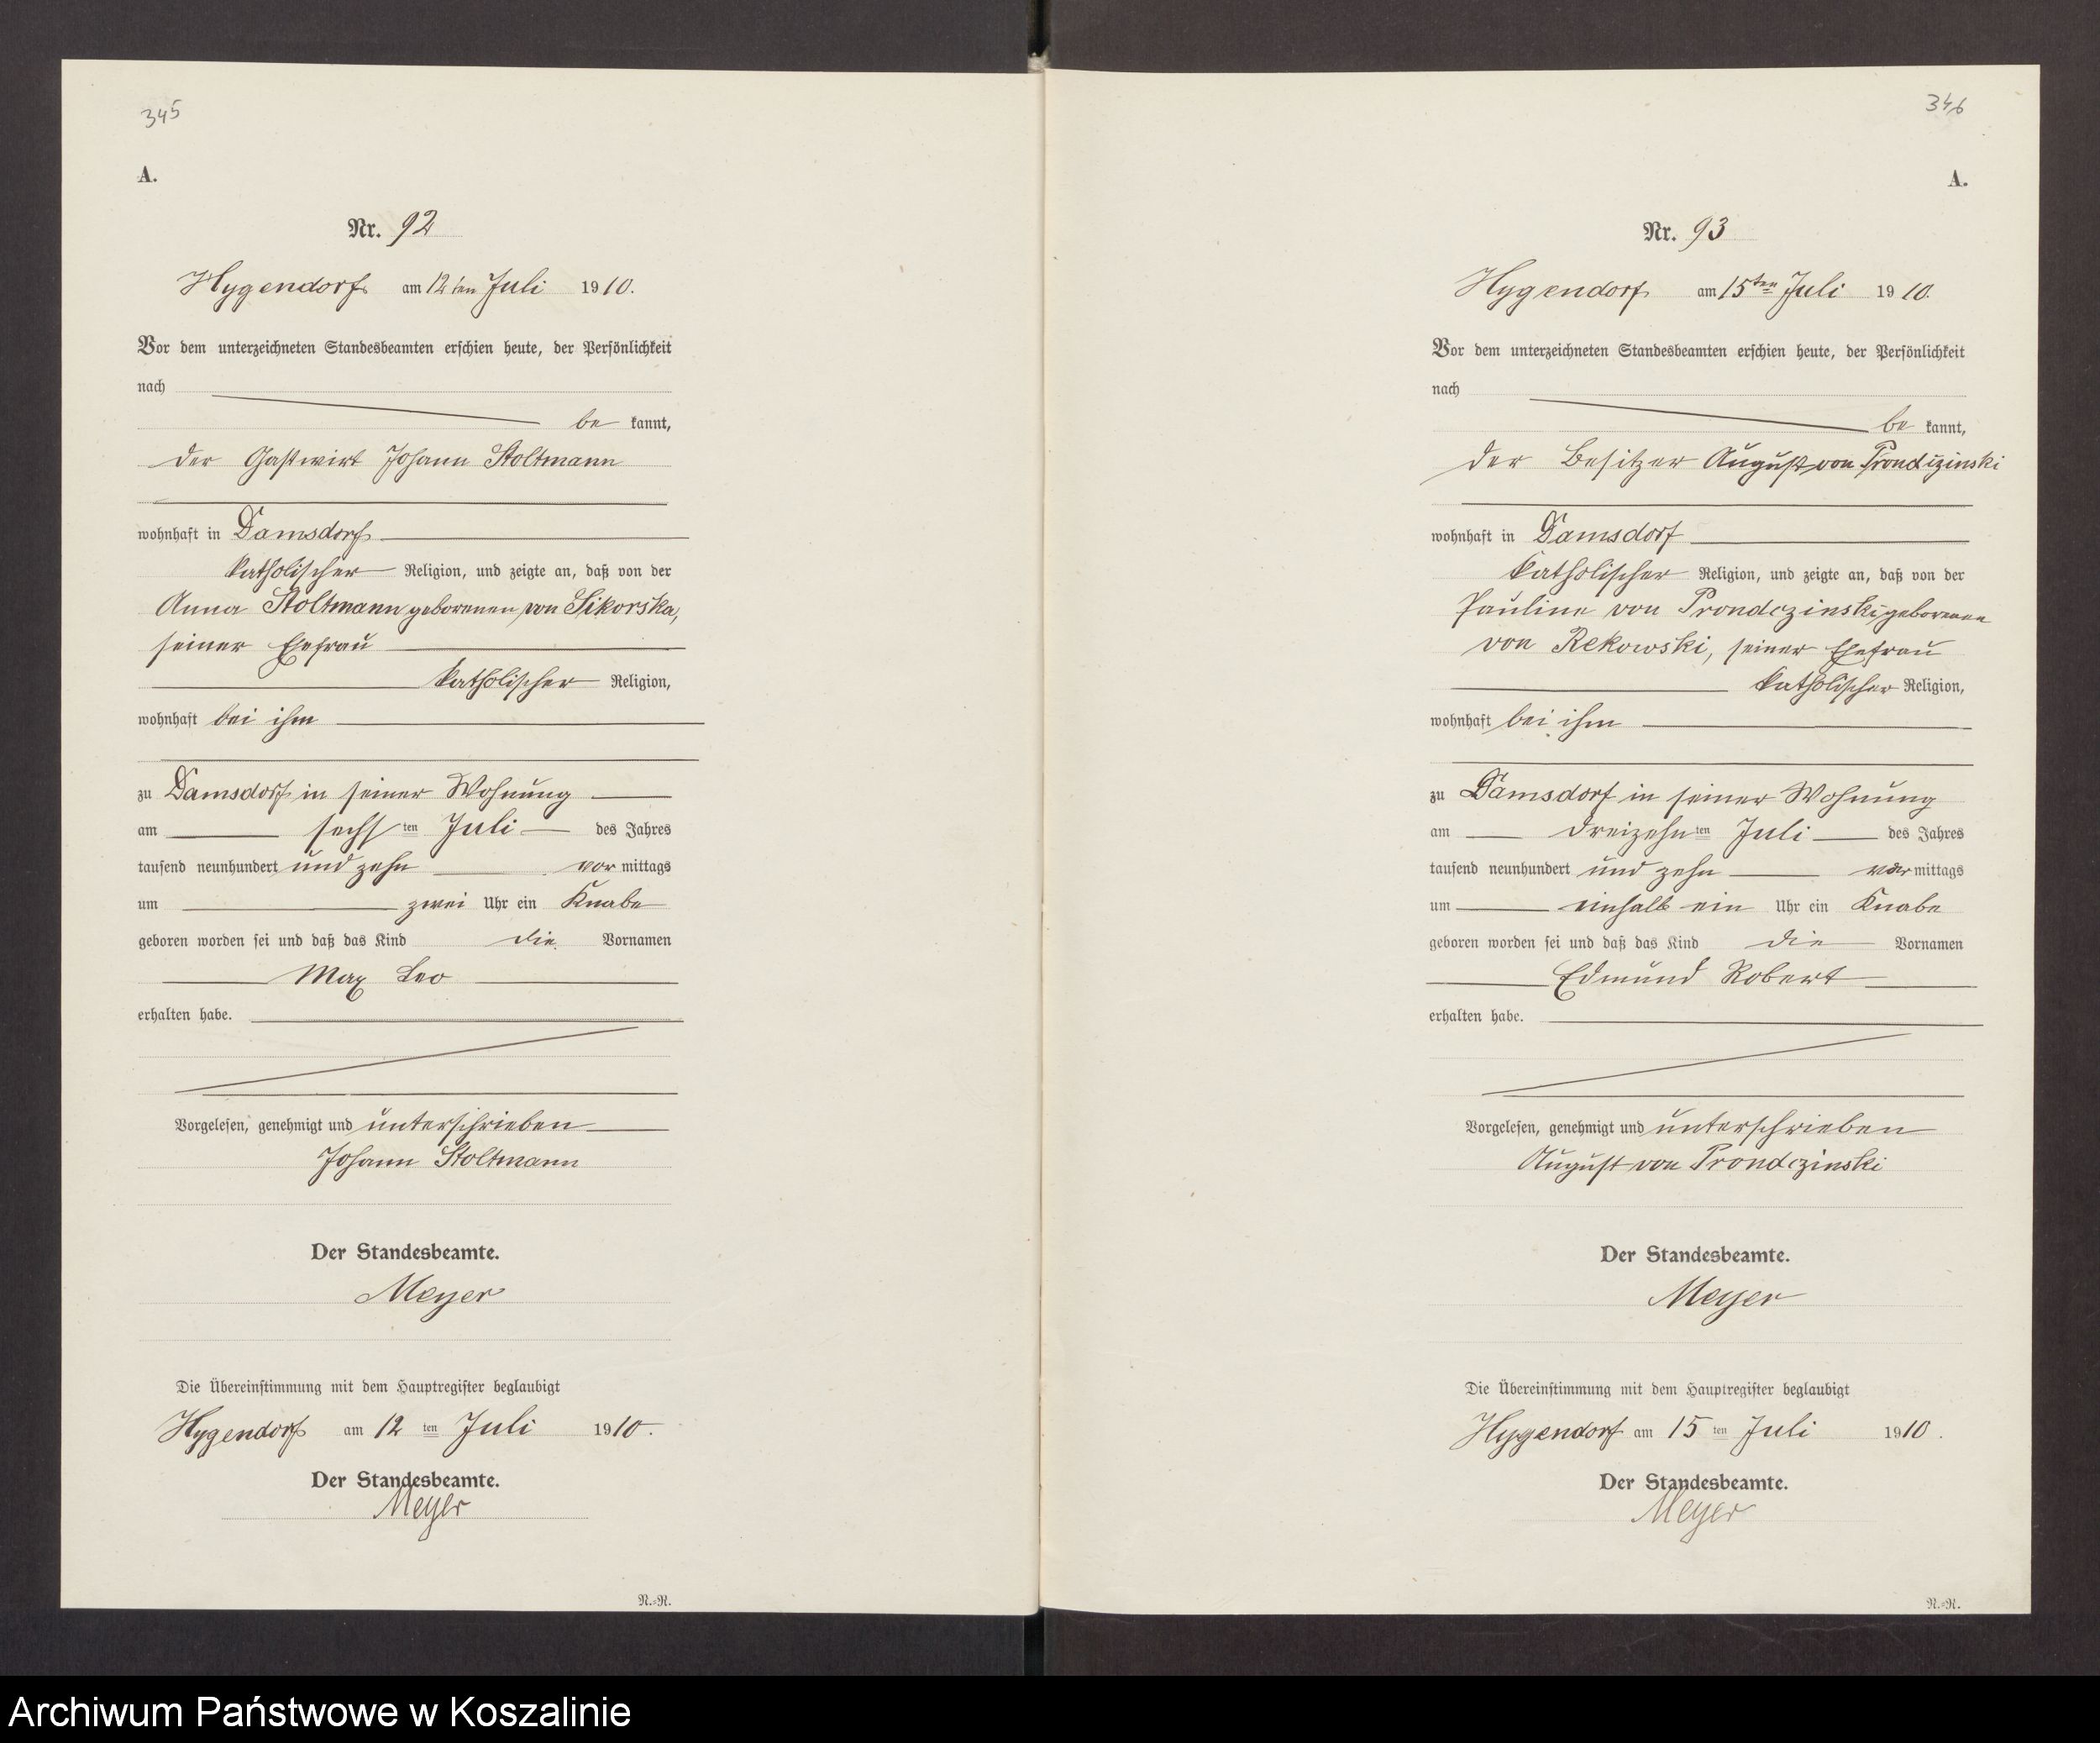 345
A.
Nr. 92
Hygendorf am 12ten Juli 1910.
Vor dem unterzeichneten Standesbeamten erschien heute, der Persönlichkeit
nach
be kannt,
der Gastwirt Johann Stoltmann
wohnhaft in Damsdorf
katholischer Religion, und zeigte an, daß von der
Anna Stoltmann geborenen von Sikorska,
seiner Ehefrau
katholischer Religion,
wohnhaft bei ihm
zu Damsdorf in seiner Wohnung
am sechsten Juli des Jahres
tausend neunhundert und zehn vormittags
um zwei Uhr ein Knabe
geboren worden sei und daß das Kind die Vornamen
Max Leo
erhalten habe.
Vorgelesen, genehmigt und unterschrieben
Johann Stoltmann
Der Standesbeamte.
Meyer
Die Übereinstimmung mit dem Hauptregister beglaubigt
Hygendorf am 12 ten Juli 1910.
Der Standesbeamte.
Meyer
N.-N.
346
A.
Nr. 93
Hygendorf am 15ten Juli 1910.
Vor dem unterzeichneten Standesbeamten erschien heute, der Persönlichkeit
nach
be kannt,
der Besitzer August von Prondizinski
wohnhaft in Damsdorf
katholischer Religion, und zeigte an, daß von der
Pauline von Prondczinski geborenen
von Rekowski, seiner Ehefrau
katholischer Religion,
wohnhaft bei ihm
zu Damsdorf in seiner Wohnung
am dreizehnten Juli des Jahres
tausend neunhundert und zehn vormittags
um einhalb ein Uhr ein Knabe
geboren worden sei und daß das Kind die Vornamen
Edmund Robert
erhalten habe.
Vorgelesen, genehmigt und unterschrieben
August von Prondczinski
Der Standesbeamte.
Meyer
Die Übereinstimmung mit dem Hauptregister beglaubigt
Hygendorf am 15 ten Juli 1910.
Der Standesbeamte.
Meyer
N.-N.
Archiwum Państwowe w Koszalinie